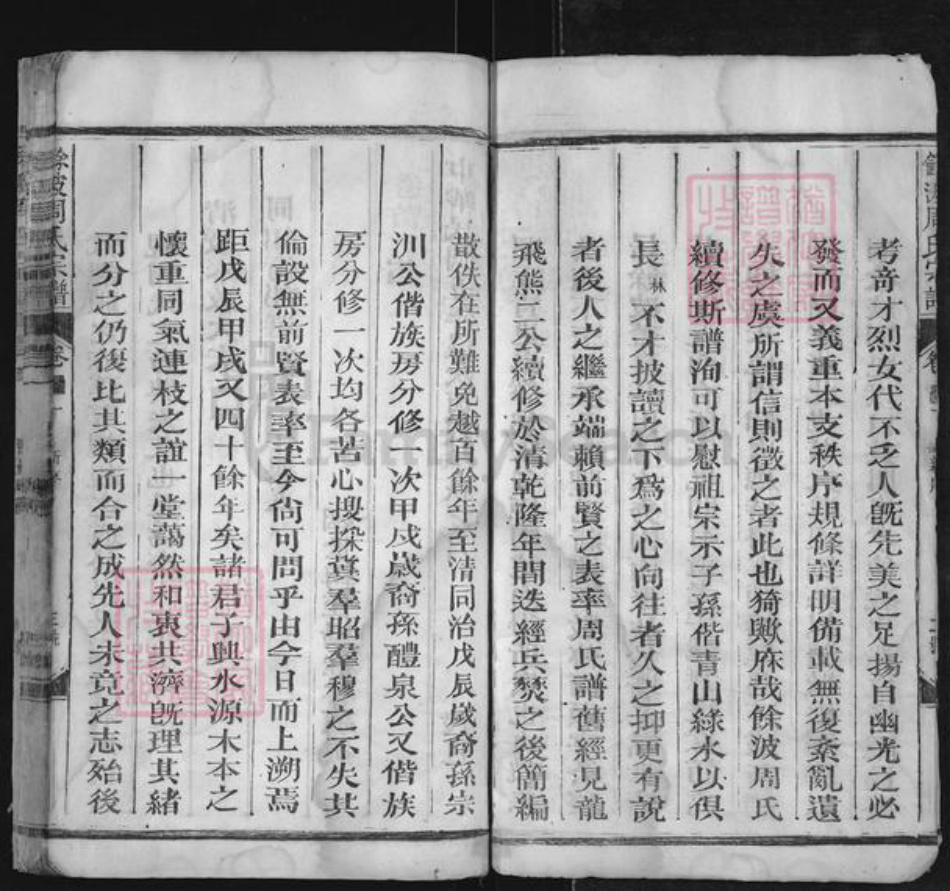 考奇才烈女代不乏人旣先美之足揚自幽光之必
發而又義重本支秩序規條詳明備載無復紊亂遺
失之虞所謂信則徵之者此也猗歟庥哉餘波周氏
續修斯譜洵可以慰祖宗示子孫偕青山綠水以俱
長林不才披讀之下爲之心向往者久之抑更有說
者後人之繼承端賴前賢之表率周氏譜舊經見龍
飛熊二公續修於清乾隆年間迭經兵燹之後簡編
散佚在所難免越百餘年至清同治戊辰歲裔孫宗
汌公偕族房分修一次甲戍歲裔孫醴泉公又偕族
房分修一次均各苦心搜採冀羣昭羣穆之不失其
倫設無前賢表率至今尙可問乎由今日而上溯焉
距戊辰甲戍又四十餘年矣諸君子興水源木本之
懷重同氣連枝之誼一堂藹然和衷共濟旣理其緒
而分之仍復比其類而合之成先人未竟之志殆後
餘波周氏宗譜
卷